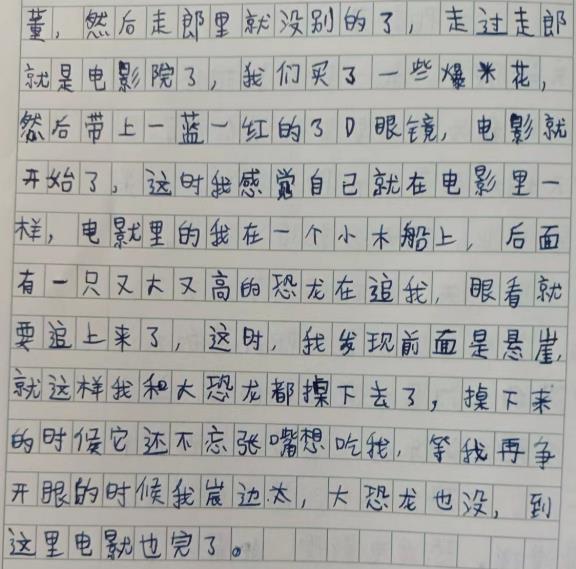 董，然后走郎里就没别的了，走过走郎
就是电影院了，我们买了一些爆米花，
然后带上一蓝一红的3D眼镜，电影就
开始了，这时我感觉自已就在电影里一
样，电影里的我在一个小木船上，后面
有一只又大又高的恐龙在追我，眼看就
要追上来了，这时，我发现前面是悬崖，
就这样我和大恐龙都掉下去了，掉下来
的时候它还不忘张嘴想吃我，等我再争
开眼的时候我崖边太，大恐龙也没，到
这里电影也完了。